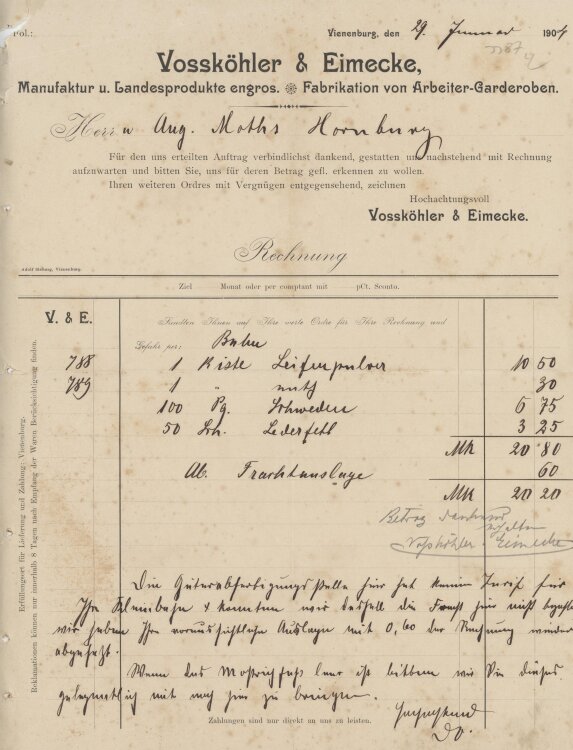 Fol.:
Vienenburg, den 29. Januar 1904
Vossköhler & Eimecke,
Manufaktur u. Landesprodukte engros. Fabrikation von Arbeiter-Garderoben.
Herrn Aug. Moths Hornburg
Für den uns erteilten Auftrag verbindlichst dankend, gestatten uns nachstehend mit Rechnung
aufzuwarten und bitten Sie, uns für deren Betrag gefl. erkennen zu wollen.
Ihren weiteren Ordres mit Vergnügen entgegensehend, zeichnen
Hochachtungsvoll
Vossköhler & Eimecke.
Rechnung
Adolf Hellwig, Vienenburg.
Ziel Monat oder per comptant mit pCt. Sconto.
V. & E.
Sandten Ihnen auf Ihre werte Ordre für Ihre Rechnung und
Gefahr per: Bahn
788 1 Kiste Seifenpulver 10 50
789 1 " 30
100 Pg. Schweden 6 75
50 Sch. Lederfett 3 25
Mk 20 80
Ab. Frachtauslage 60
Mk 20 20
Betrag dankend erhalten
Vossköhler Eimecke
Die Güterabfertigungsstelle hier hat keinen Tarif für
Ihre Kleinbahn & konnten wir deshalb die Fracht hier nicht
wir haben Ihre voraussichtliche Auslage mit 0,60 der Rechnung wieder
abgesetzt.
Wenn das Mostrichfass leer ist bitten wir Sie dieses
gelegentlich mit nach hier zu bringen.
Hochachtend
D.O.
Zahlungen sind nur direkt an uns zu leisten.
Erfüllungsort für Lieferung und Zahlung: Vienenburg.
Reklamationen können nur innerhalb 8 Tagen nach Empfang der Waren Berücksichtigung finden.